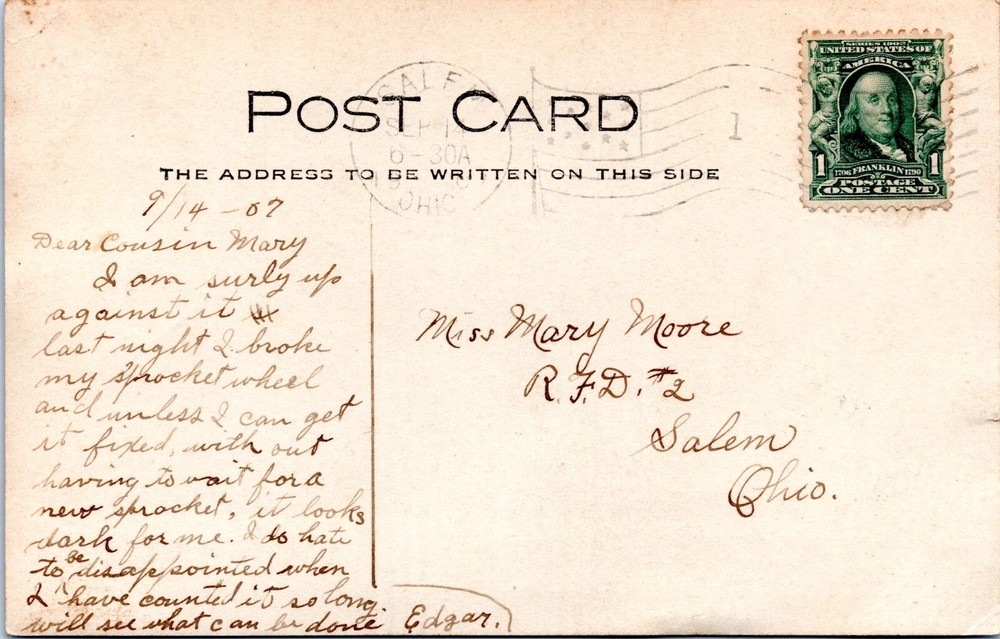 POST CARD
THE ADDRESS TO BE WRITTEN ON THIS SIDE
SALEM
SEP 1
6-30A
OHIO
1
SERIES 1902
UNITED STATES OF
AMERICA
1 1
1706 FRANKLIN 1790
POSTAGE
ONE CENT
9/14-07
Dear Cousin Mary
I am surly up
against it
last night I broke
my sprocket wheel
and unless I can get
it fixed, with out
having to wait for a
new sprocket, it looks
dark for me. I do hate
to be disappointed when
I have counted it so long.
will see what can be done
Edgar.
Miss Mary Moore
R.F.D. #2
Salem
Ohio.